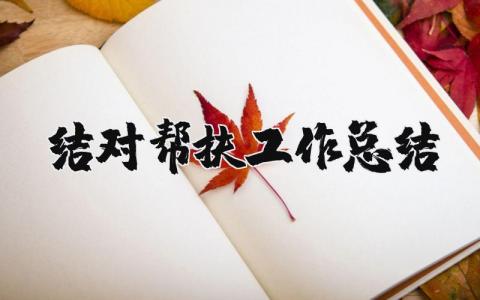 结对帮扶工作总结